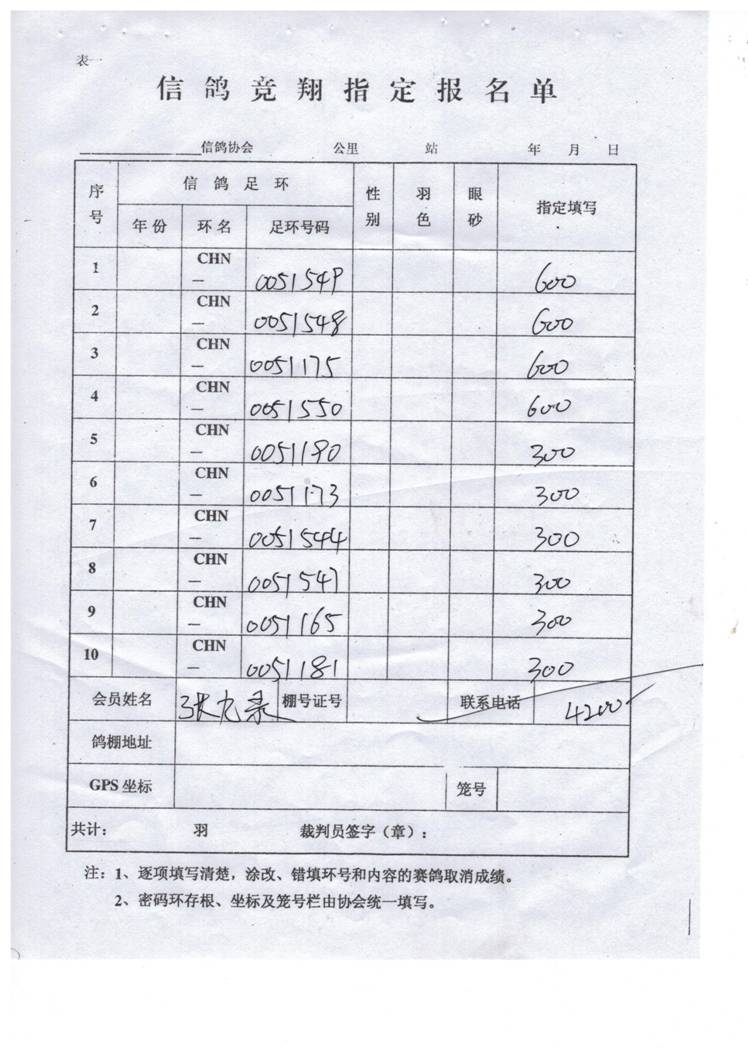 表一
信鸽竞翔指定报名单
信鸽协会 公里 站 年 月 日
序号 信鸽足环 性别 羽色 眼砂 指定填写
年份 环名 足环号码
1 CHN – 0051549 600
2 CHN – 0051548 600
3 CHN – 0051175 600
4 CHN – 0051550 600
5 CHN – 0051190 300
6 CHN – 0051173 300
7 CHN – 0051544 300
8 CHN – 0051547 300
9 CHN – 0051165 300
10 CHN – 0051181 300
会员姓名 张九录 棚号证号 联系电话 4200
鸽棚地址
GPS 坐标 笼号
共计： 羽 裁判员签字（章）：
注：1、逐项填写清楚，涂改、错填环号和内容的赛鸽取消成绩。
2、密码环存根、坐标及笼号栏由协会统一填写。